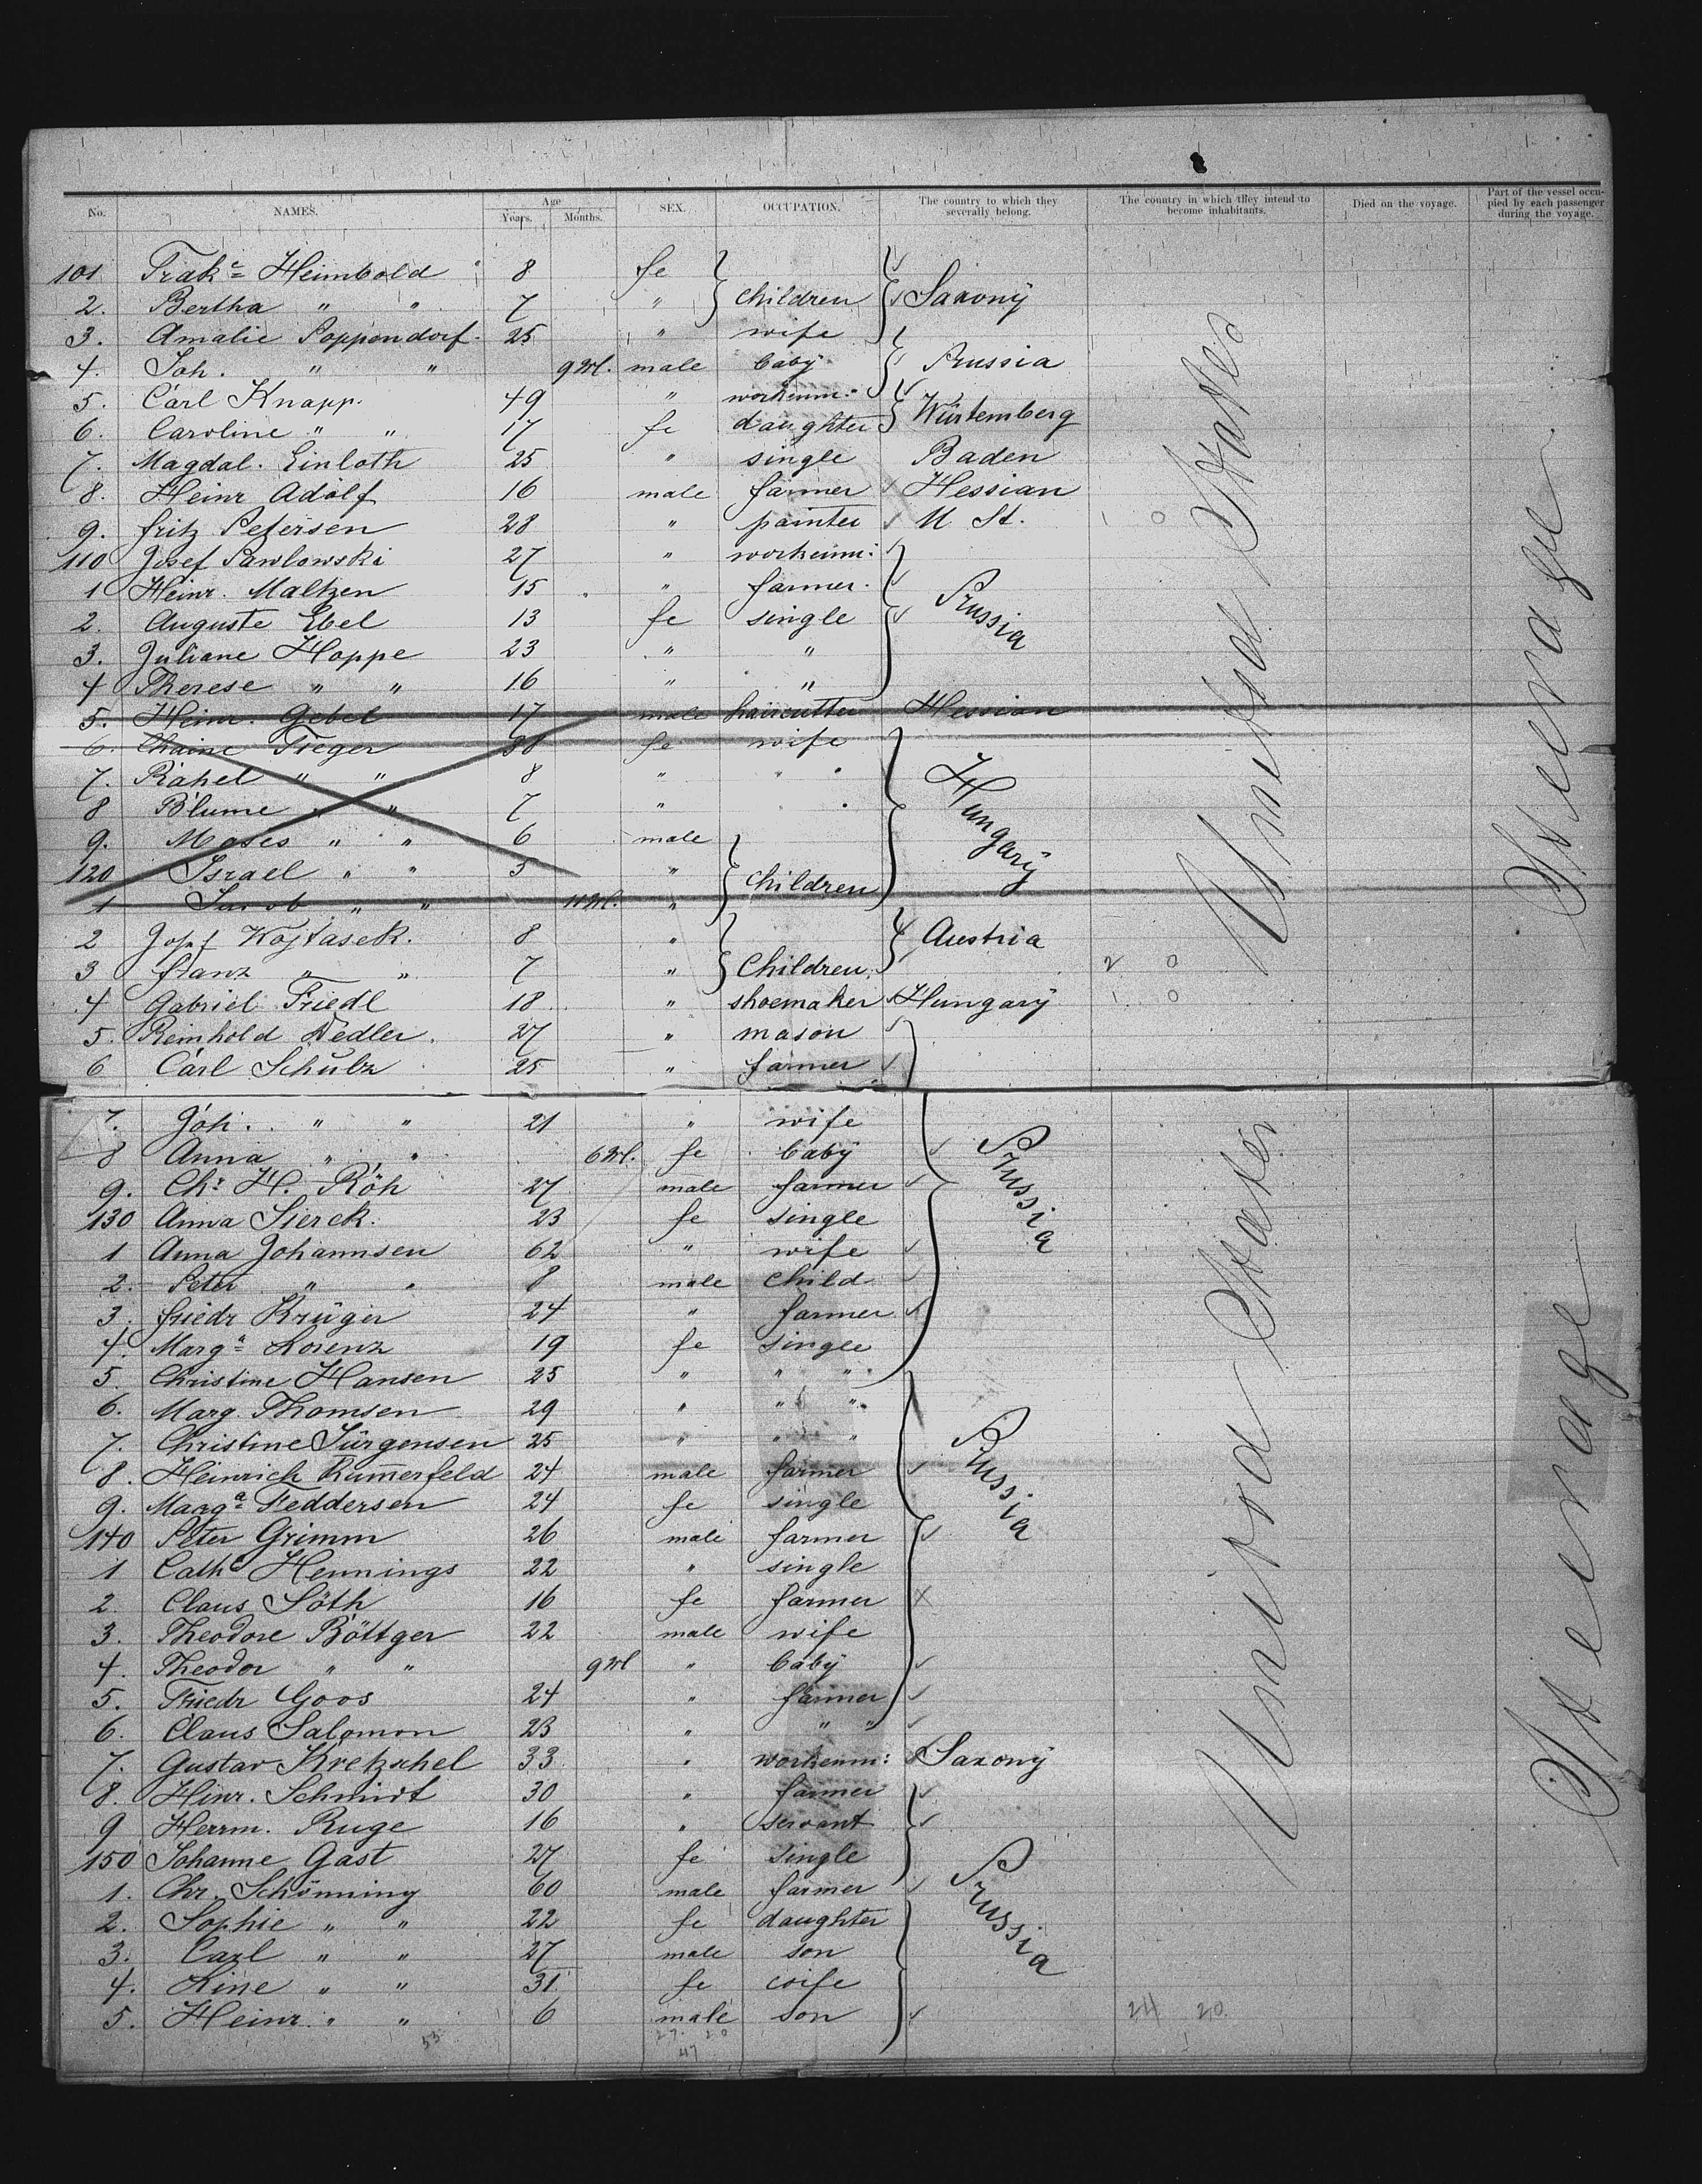 No. NAMES. Age Years. Months. SEX. OCCUPATION. The country to which they severally belong. The country in which they intend to become inhabitants. Died on the voyage. Part of the vessel occupied by each passenger during the voyage.
101 Heimbold 8 fe
2. Bertha " " 7 " children Saxony
3. Amalie Poppendorf 25 " wife
4. Joh. " " 9 M. male baby Prussia
5. Carl Knapp. 49 " workmm:
6. Caroline " " 17 fe daughter Würtemberg
7. Magdal. Einloth 25 " single Baden
8. Heinr Adolf 16 male farmer Hessian
9. Fritz Petersen 28 " painter U. St. 1 0
110 Josef Pawlowski 27 " workmm:
1 Heinr. Maltzen 15 " farmer. Prussia
2. Auguste Ebel 13 fe single
3. Juliane Hoppe 23 " "
4 Therese " " 16 " "
5. Heinr. Gebel 17 male haircutter Hessian
6. Chaine Tieger fe wife
7. Rahel " " 8 " Hungary
8 Blume " " 7 "
9. Moses " " 6 male
120 Israel " " 5 " children
1 Jacob " " 11 M. "
2 Josef Kojtasek. 8 " Austria
3 Franz " " 7 " Children 2 0
4 Gabriel Friedl 18 " shoemaker Hungary 1 0
5. Reinhold Wedler 27 " mason
6 Carl Schulz 25 " farmer
United States
Steerage
7. Joh. " " 21 " wife
8 Anna " " 6 M. fe baby Prussia
9. Chr. H. Röh 27 male farmer
130 Anna Sierck. 23 fe single
1 Anna Johannsen 62 " wife
2. Peter " " 8 male child
3. Friedr Krüger 24 " farmer
4. Marga Lorenz 19 fe single
5. Christine Hansen 25 " " "
6. Marg. Thomsen 29 " " "
7. Christine Jürgensen 25 " " "
8. Heinrich Rumerfeld 24 male farmer Prussia
9. Marga Feddersen 24 fe single
140 Peter Grimm 26 male farmer
1 Catha Hennings 22 " single
2. Claus Söth 16 fe farmer
3. Theodore Böttger 22 male wife
4. Theodor " " 9 M " baby
5. Friedr Goos 24 " farmer
6. Claus Salomon 23 " " "
7. Gustav Kretzschel 33 " workmm: Saxony
8. Hinr. Schmidt 30 " farmer
9 Herrm. Ruge 16 " servant
150 Johanne Gast 27 fe single
1. Chr. Schönning 60 male farmer Prussia
2. Sophie " " 22 fe daughter
3. Carl " " 27 male son
4. Line " " 31 fe wife
5. Heinr. " " 6 male son 24 20
53 27. 20
47
United States
Steerage